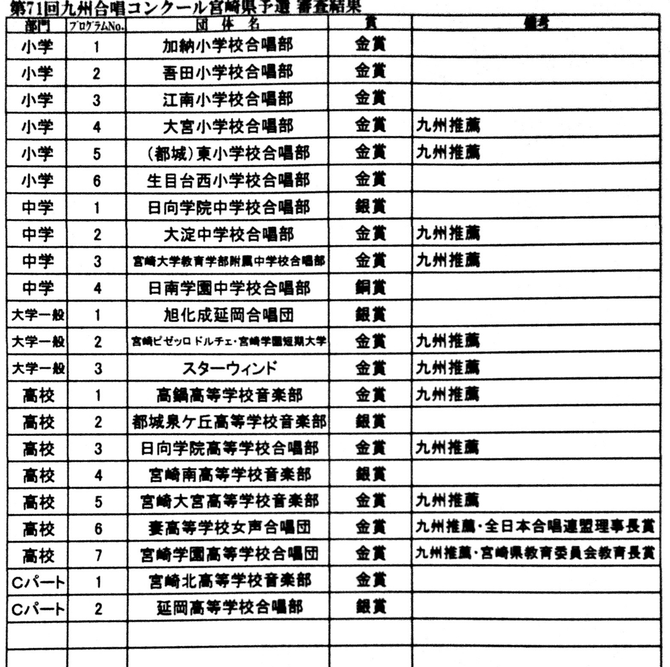 第71回九州合唱コンクール宮崎県予選 審査結果
部門 プログラムNo. 団 体 名 賞 備考
小学 1 加納小学校合唱部 金賞
小学 2 吾田小学校合唱部 金賞
小学 3 江南小学校合唱部 金賞
小学 4 大宮小学校合唱部 金賞 九州推薦
小学 5 (都城)東小学校合唱部 金賞 九州推薦
小学 6 生目台西小学校合唱部 金賞
中学 1 日向学院中学校合唱部 銀賞
中学 2 大淀中学校合唱部 金賞 九州推薦
中学 3 宮崎大学教育学部附属中学校合唱部 金賞 九州推薦
中学 4 日南学園中学校合唱部 銅賞
大学一般 1 旭化成延岡合唱団 銀賞
大学一般 2 宮崎ピゼッロ ドルチェ・宮崎学園短期大学 金賞 九州推薦
大学一般 3 スターウィンド 金賞 九州推薦
高校 1 高鍋高等学校音楽部 金賞 九州推薦
高校 2 都城泉ケ丘高等学校音楽部 銀賞
高校 3 日向学院高等学校合唱部 金賞 九州推薦
高校 4 宮崎南高等学校音楽部 銀賞
高校 5 宮崎大宮高等学校音楽部 金賞 九州推薦
高校 6 妻高等学校女声合唱団 金賞 九州推薦・全日本合唱連盟理事長賞
高校 7 宮崎学園高等学校合唱団 金賞 九州推薦・宮崎県教育委員会教育長賞
Cパート 1 宮崎北高等学校音楽部 金賞
Cパート 2 延岡高等学校合唱部 銀賞